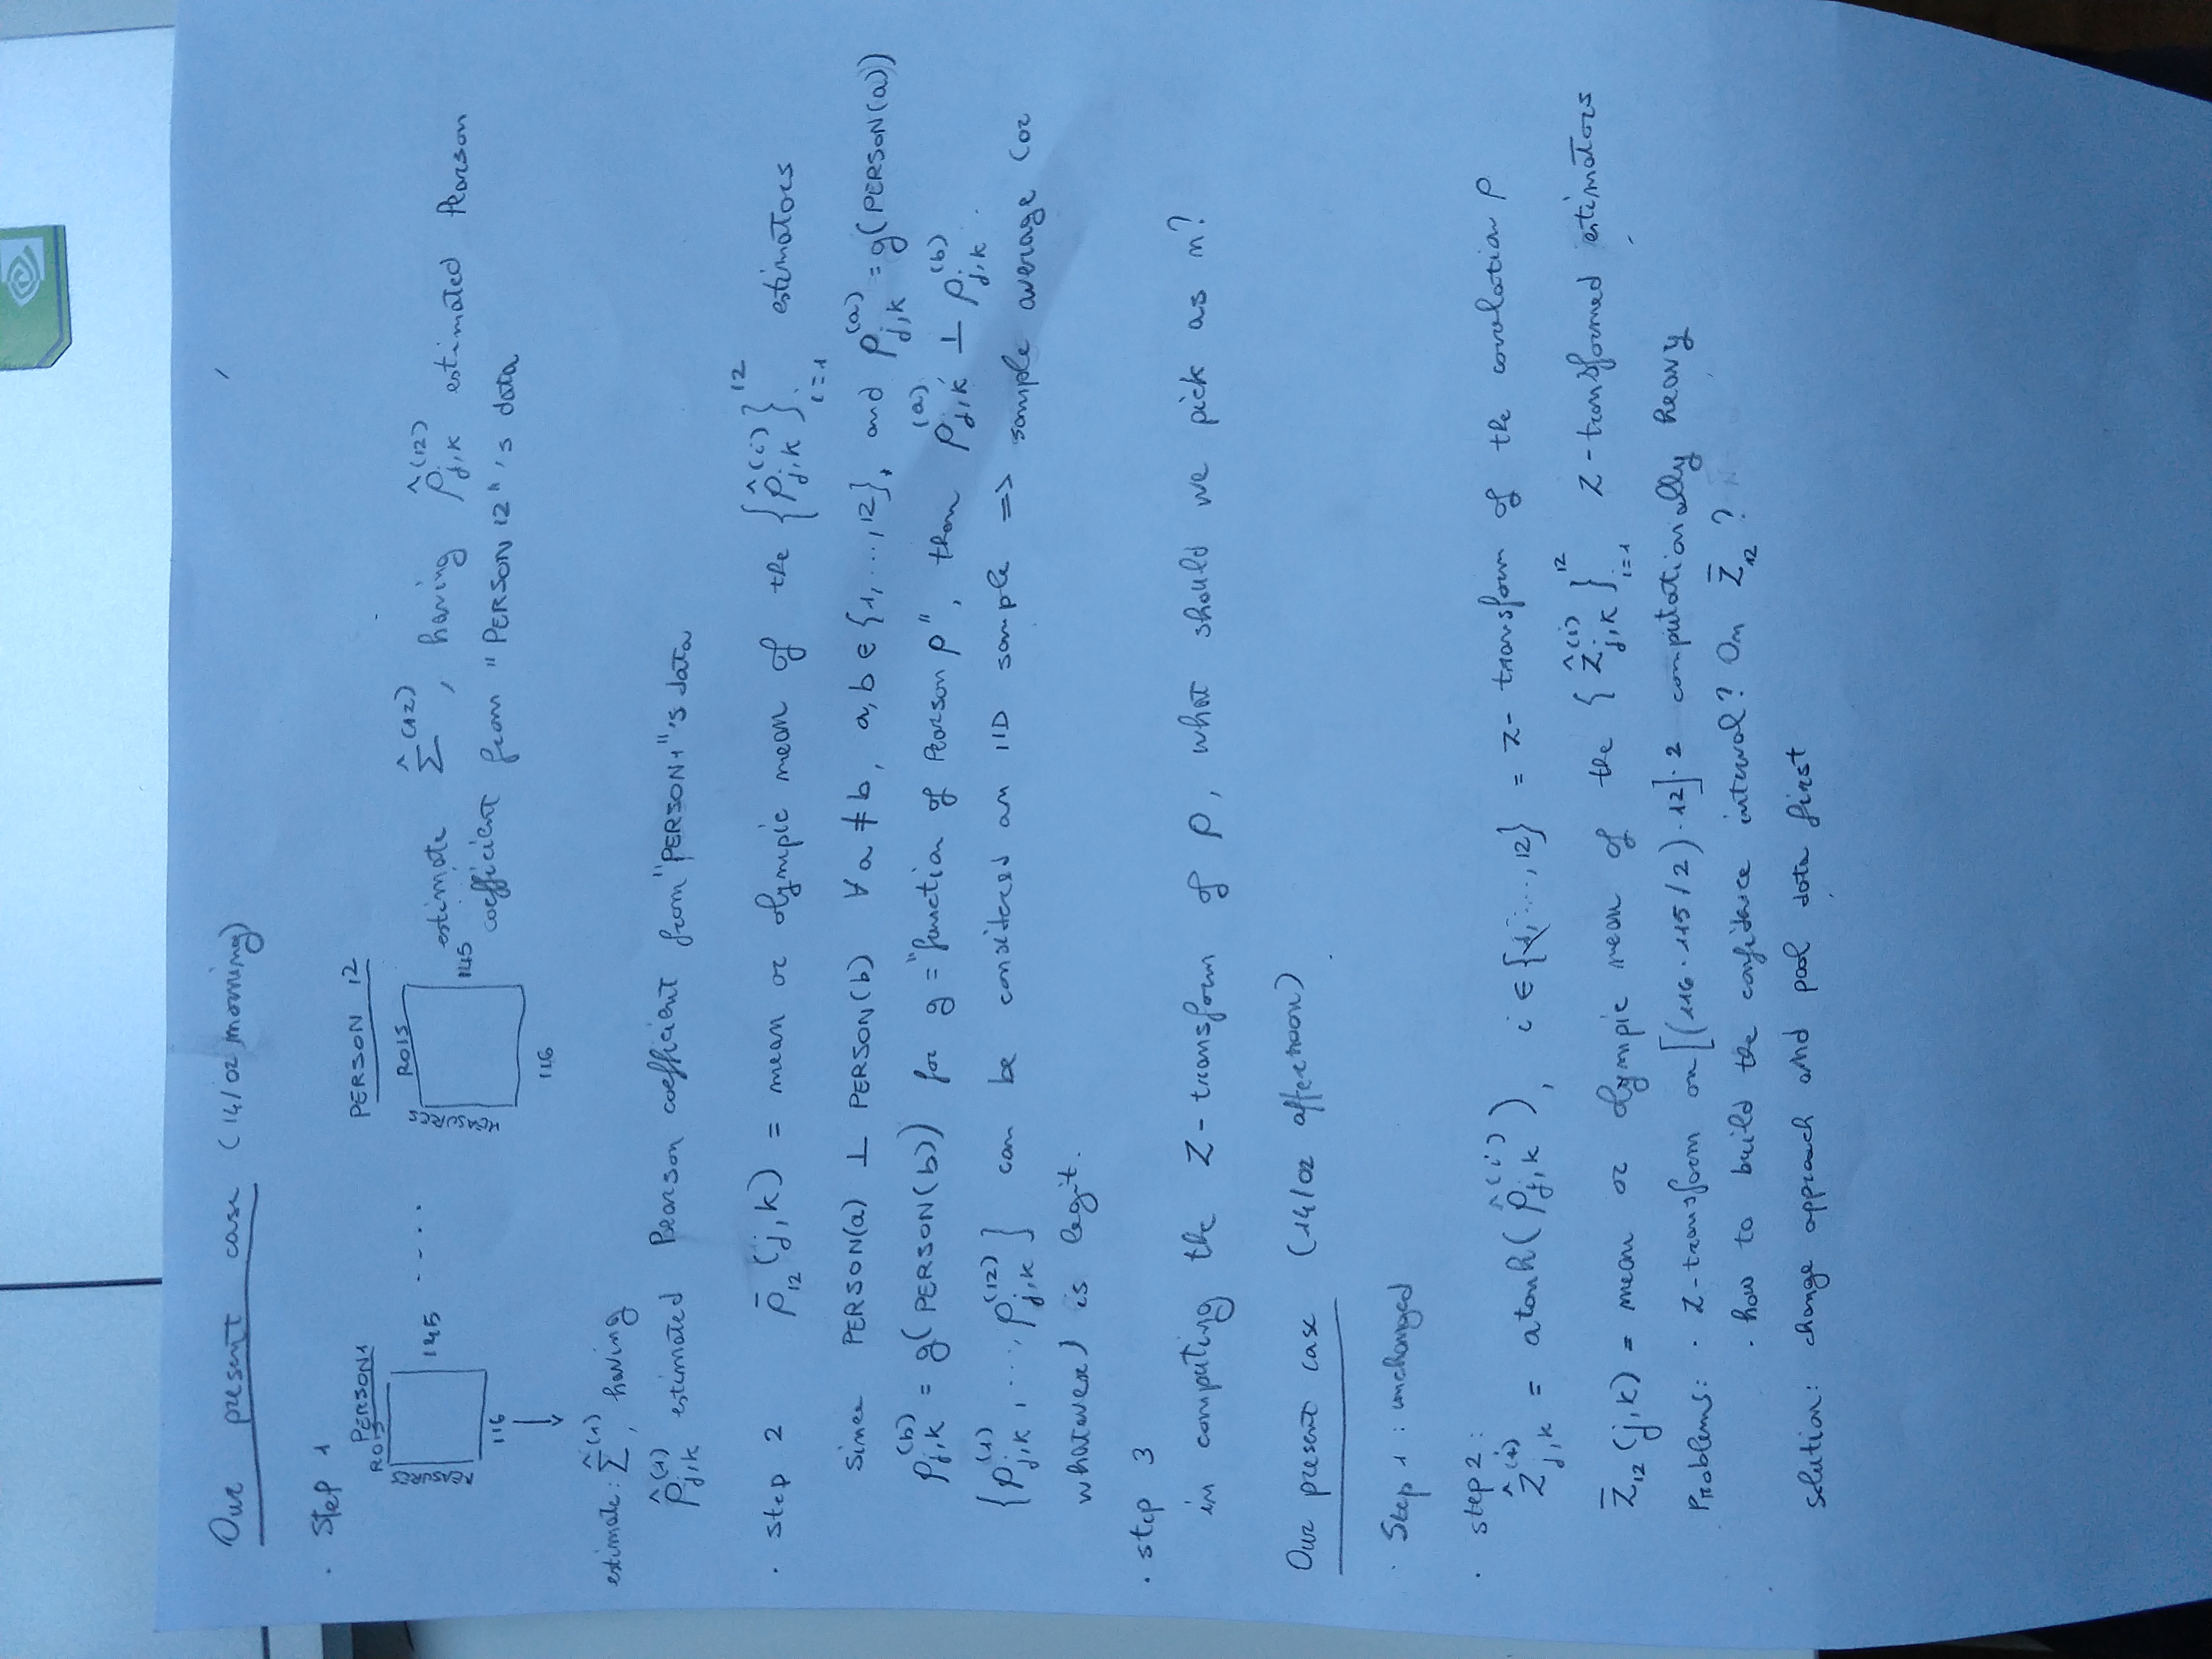 Our present case (14/02 morning)
· Step 1
PERSON1
ROIS
MEASURES
145
116
. . . .
PERSON 12
ROIS
MEASURES
145
116
estimate Σ̂^(12), having ρ̂_{j,k}^(12) estimated Pearson
coefficient from "PERSON 12"'s data
estimate: Σ̂^(1), having
ρ̂_{j,k}^(1) estimated Pearson coefficient from "PERSON1"'s data
· step 2 ρ̄_12(j,k) = mean or olympic mean of the {ρ̂_{j,k}^(i)}_{i=1}^{12} estimators
since PERSON(a) ⊥ PERSON(b) ∀ a ≠ b, a,b ∈ {1, ..., 12}, and ρ_{j,k}^(a) = g(PERSON(a))
ρ_{j,k}^(b) = g(PERSON(b)) for g = "function of Pearson ρ", then ρ_{j,k}^(a) ⊥ ρ_{j,k}^(b).
{ρ_{j,k}^(1), ..., ρ_{j,k}^(12)} can be considered an IID sample => sample average (or
whatever) is legit.
· step 3
in computing the Z-transform of ρ, what should we pick as n?
Our present case (14/02 afternoon)
· Step 1: unchanged
· step 2:
ẑ_{j,k}^(i) = atanh(ρ̂_{j,k}^(i)), i ∈ {1, ..., 12} = z-transform of the correlation ρ
z̄_12(j,k) = mean or olympic mean of the {ẑ_{j,k}^(i)}_{i=1}^{12} Z-transformed estimators
Problems: · Z-transform on [(116·115/2)·12]·2 computationally heavy
· how to build the confidence interval? On z̄_12?
solution: change approach and pool data first